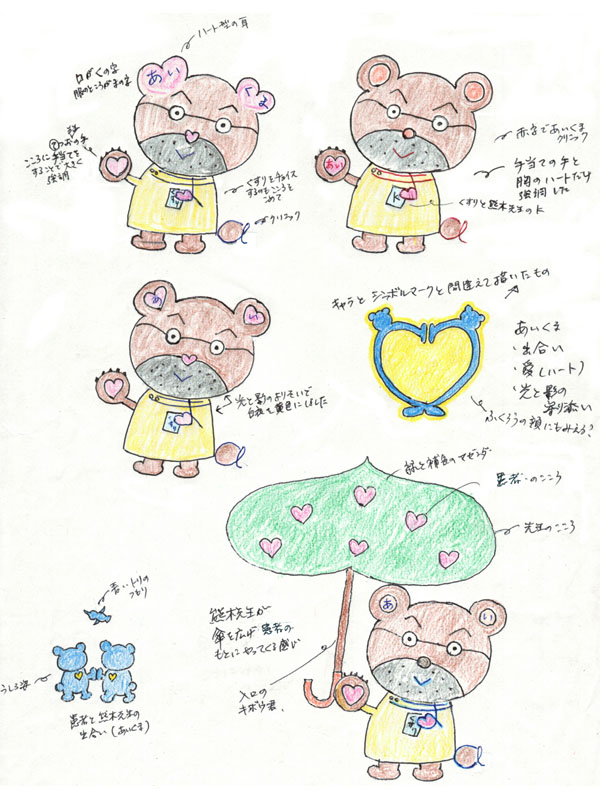 ハート型の耳
口がくの字
服のところがまの字
あい
くま
こころに手当てを
することで大きく
強調
くすりをチョイス
するのもこころを
こめて
クリニック
赤字であいくま
クリニック
手当ての手と
胸のハートだけ
強調した
あい
K
くすりと熊木先生のK
キャラとシンボルマークと間違えて描いたもの
あ
い
光と影のよりそいで
白衣を黄色にしました
あいくま
・出合い
・愛(ハート)
・光と影の
寄り添い
ふくろうの顔にもみえる?
緑と補色のマゼンダー
患者のこころ
先生のこころ
青いトリの
つもり
うしろ姿
患者と熊木先生の
出合い(あいくま)
熊木先生が
傘を広げ患者の
もとにやってくる感じ
入口の
キボウ君.
あ
い